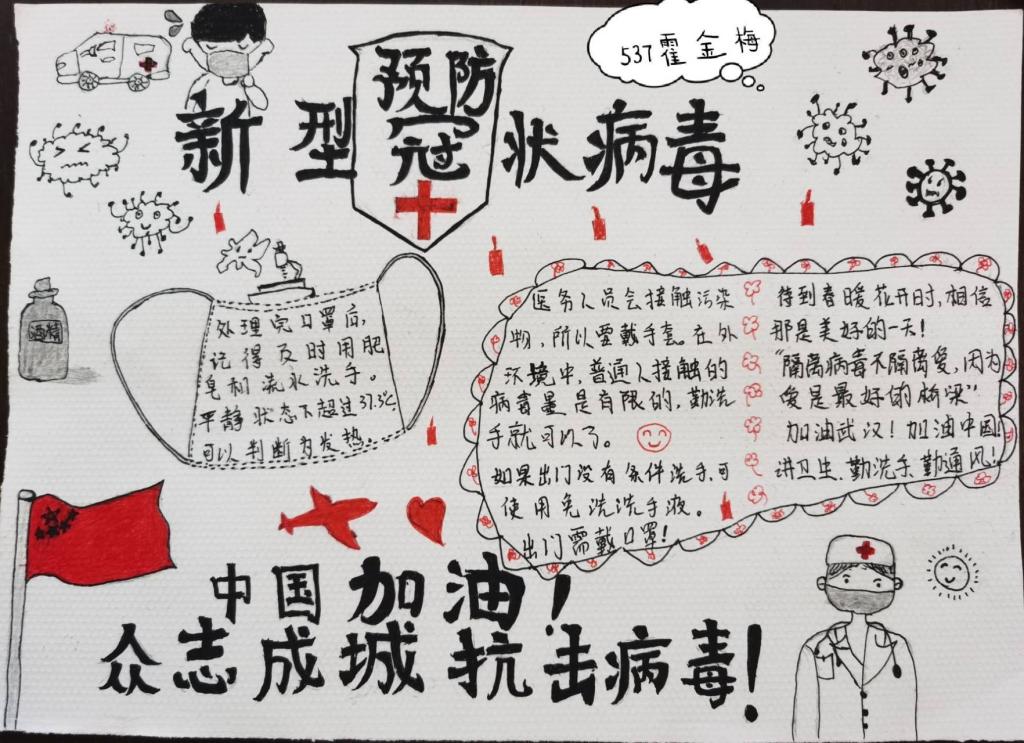 537霍金梅
预防
新型冠状病毒
酒精
处理完口罩后,
记得及时用肥
皂和流水洗手。
平静状态下超过37.3℃,
可以判断为发热。
医务人员会接触污染
物,所以需戴手套。在外
环境中,普通人接触的
病毒量是有限的,勤洗
手就可以了。
如果出门没有条件洗手,可
使用免洗洗手液。
出门需戴口罩!
待到春暖花开时,相信
那是美好的一天!
“隔离病毒不隔离爱,因为
爱是最好的桥梁”
加油武汉!加油中国!
讲卫生、勤洗手、勤通风!
中国加油!
众志成城抗击病毒!